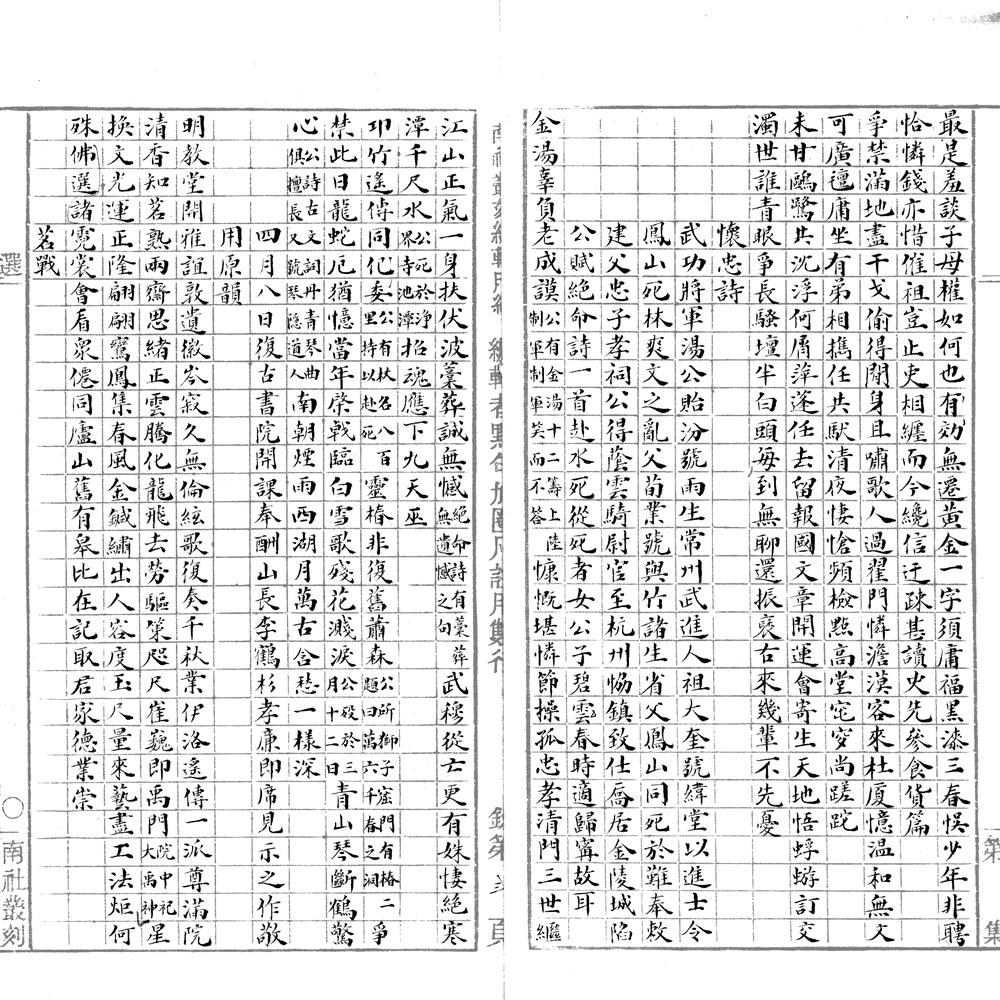 最是羞談子母權如何也有効無遷黃金一字須庸福黑漆三春悞少年非聘
恰憐錢亦惜催租豈止吏相纏而今纔信迂疎甚讀史先參食貨篇
爭禁滿地盡干戈偷得閒身且嘯歌人過翟門憐澹漠客來杜厦憶溫和無文
可廣襢庸坐有弟相攜任共馱清夜悽愴頻檢點高堂窀穸尚蹉跎
未甘鷗鷺共沉浮何屑萍蓬任去留報國文章開運會寄生天地悟蜉蝣訂交
濁世誰青眼爭長騷壇半白頭每到無聊還振褎古來幾輩不先憂
懷忠詩
武功將軍湯公貽汾號雨生常州武進人祖大奎號緯堂以進士令
鳳山死林爽文之亂父荀業號與竹諸生省父鳳山同死於難奉敕
建父忠子孝祠公得蔭雲騎尉官至杭州恊鎮致仕喬居金陵城陷
公賦絕命詩一首赴水死從死者女公子碧雲春時適歸寧故耳
金湯辜負老成謨公有金湯十二籌上陸制軍制軍笑而不答慷慨堪憐節操孤忠孝清門三世繼
江山正氣一身扶伏波藁葬誠無憾絕命詩有藁葬無遺憾之句武穆從亡更有姝悽絕寒
潭千尺水公死於淨界寺池潭招魂應下九天巫
卭竹遙傳同化委公有杖名八百里持以赴死靈椿非復舊蕭森公所御子窟門有格二題曰萬六千春之洞爭
禁此日龍蛇厄猶憶當年棨戟臨白雪歌殘花濺淚公歿於三月十二日青山琴斷鶴驚
心公詩古文詞丹青琴曲俱擅長又號琴隱道人南朝煙雨西湖月萬古含愁一樣深
四月八日復古書院開課奉酬山長李鶴杉孝廉即席見示之作敬
用原韻
明教堂開雅誼敦遺徽岑寂久無倫絃歌復奏千秋業伊洛遙傳一派尊滿院
清香知茗熟兩齋思緒正雲騰化龍飛去勞驅策咫尺崔巍即禹門院中祀大禹神星
換文光運正隆翩翩鸞鳳集春風金鍼繡出人容度玉尺量來藝盡工法炬何
殊佛選諸霓裳會看衆僊同廬山舊有皋比在記取君家德業崇
茗戰
南社叢刻
選
第
集